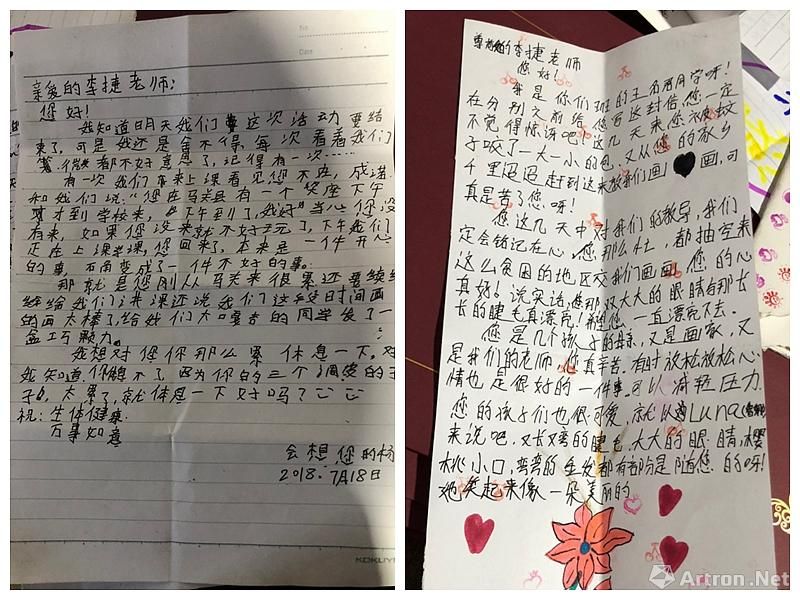 No.
Date
亲爱的李捷老师:
您好!
我知道明天我们 这次活动要结
束了,可是我还是舍不得,每次看着我们
都不好意思了,记得有一次……
有一次我们在来上课看见您不在,成诺
和我们说:"您在马关县有一个 座下午
才到学校来,"下午到了,我好 当心您没
有来,如果您没来就不好 了,下午我们
正在上课 课,您回来了,本来是一件开心
的事,不而变成了一件不好的事。
那就是您刚从马关来很累还要继续
给我们讲课还说我们这段时间画
的画太棒了,给我们大口 的同学发了一
盒巧 力。
我想对您你那么累 休息一下。对
我知道,你 不了,因为你的三个调皮的子
子,太累了,就休息一下好吗?
祝:生体健康
万事如意
会想您的杨
2018.7月18日
KOKUYO
尊敬的李捷老师
您好!
我是你们班的王 同学呀!
在分别之前给您写这封信,您一定
不觉得惊讶吧!这几天来您被蚊
子咬了一大一小的包,又从您的故乡
千里迢迢赶到这来教我们画 画,可
真是苦了您呀!
您这几天中对我们的教导,我们
定会铭记在心,您那么忙,都抽空来
这么贫困的地区交我们画画,您的心
真好!说实话,您那双大大的眼睛和那长
长的睫毛真漂亮!希望您一直漂亮下去。
您是几个孩子的母亲,又是画家,又
是我们的老师,您真辛苦。有时放松放松心
情也是很好的一件事,可以减轻压力
您的孩子们也很可爱,就以Luna
来说吧,又长又弯的睫毛,大大的眼睛,樱
桃小口,弯弯的 发都有部分是随您的呀!
她笑起来像一朵美丽的
Artron.Net